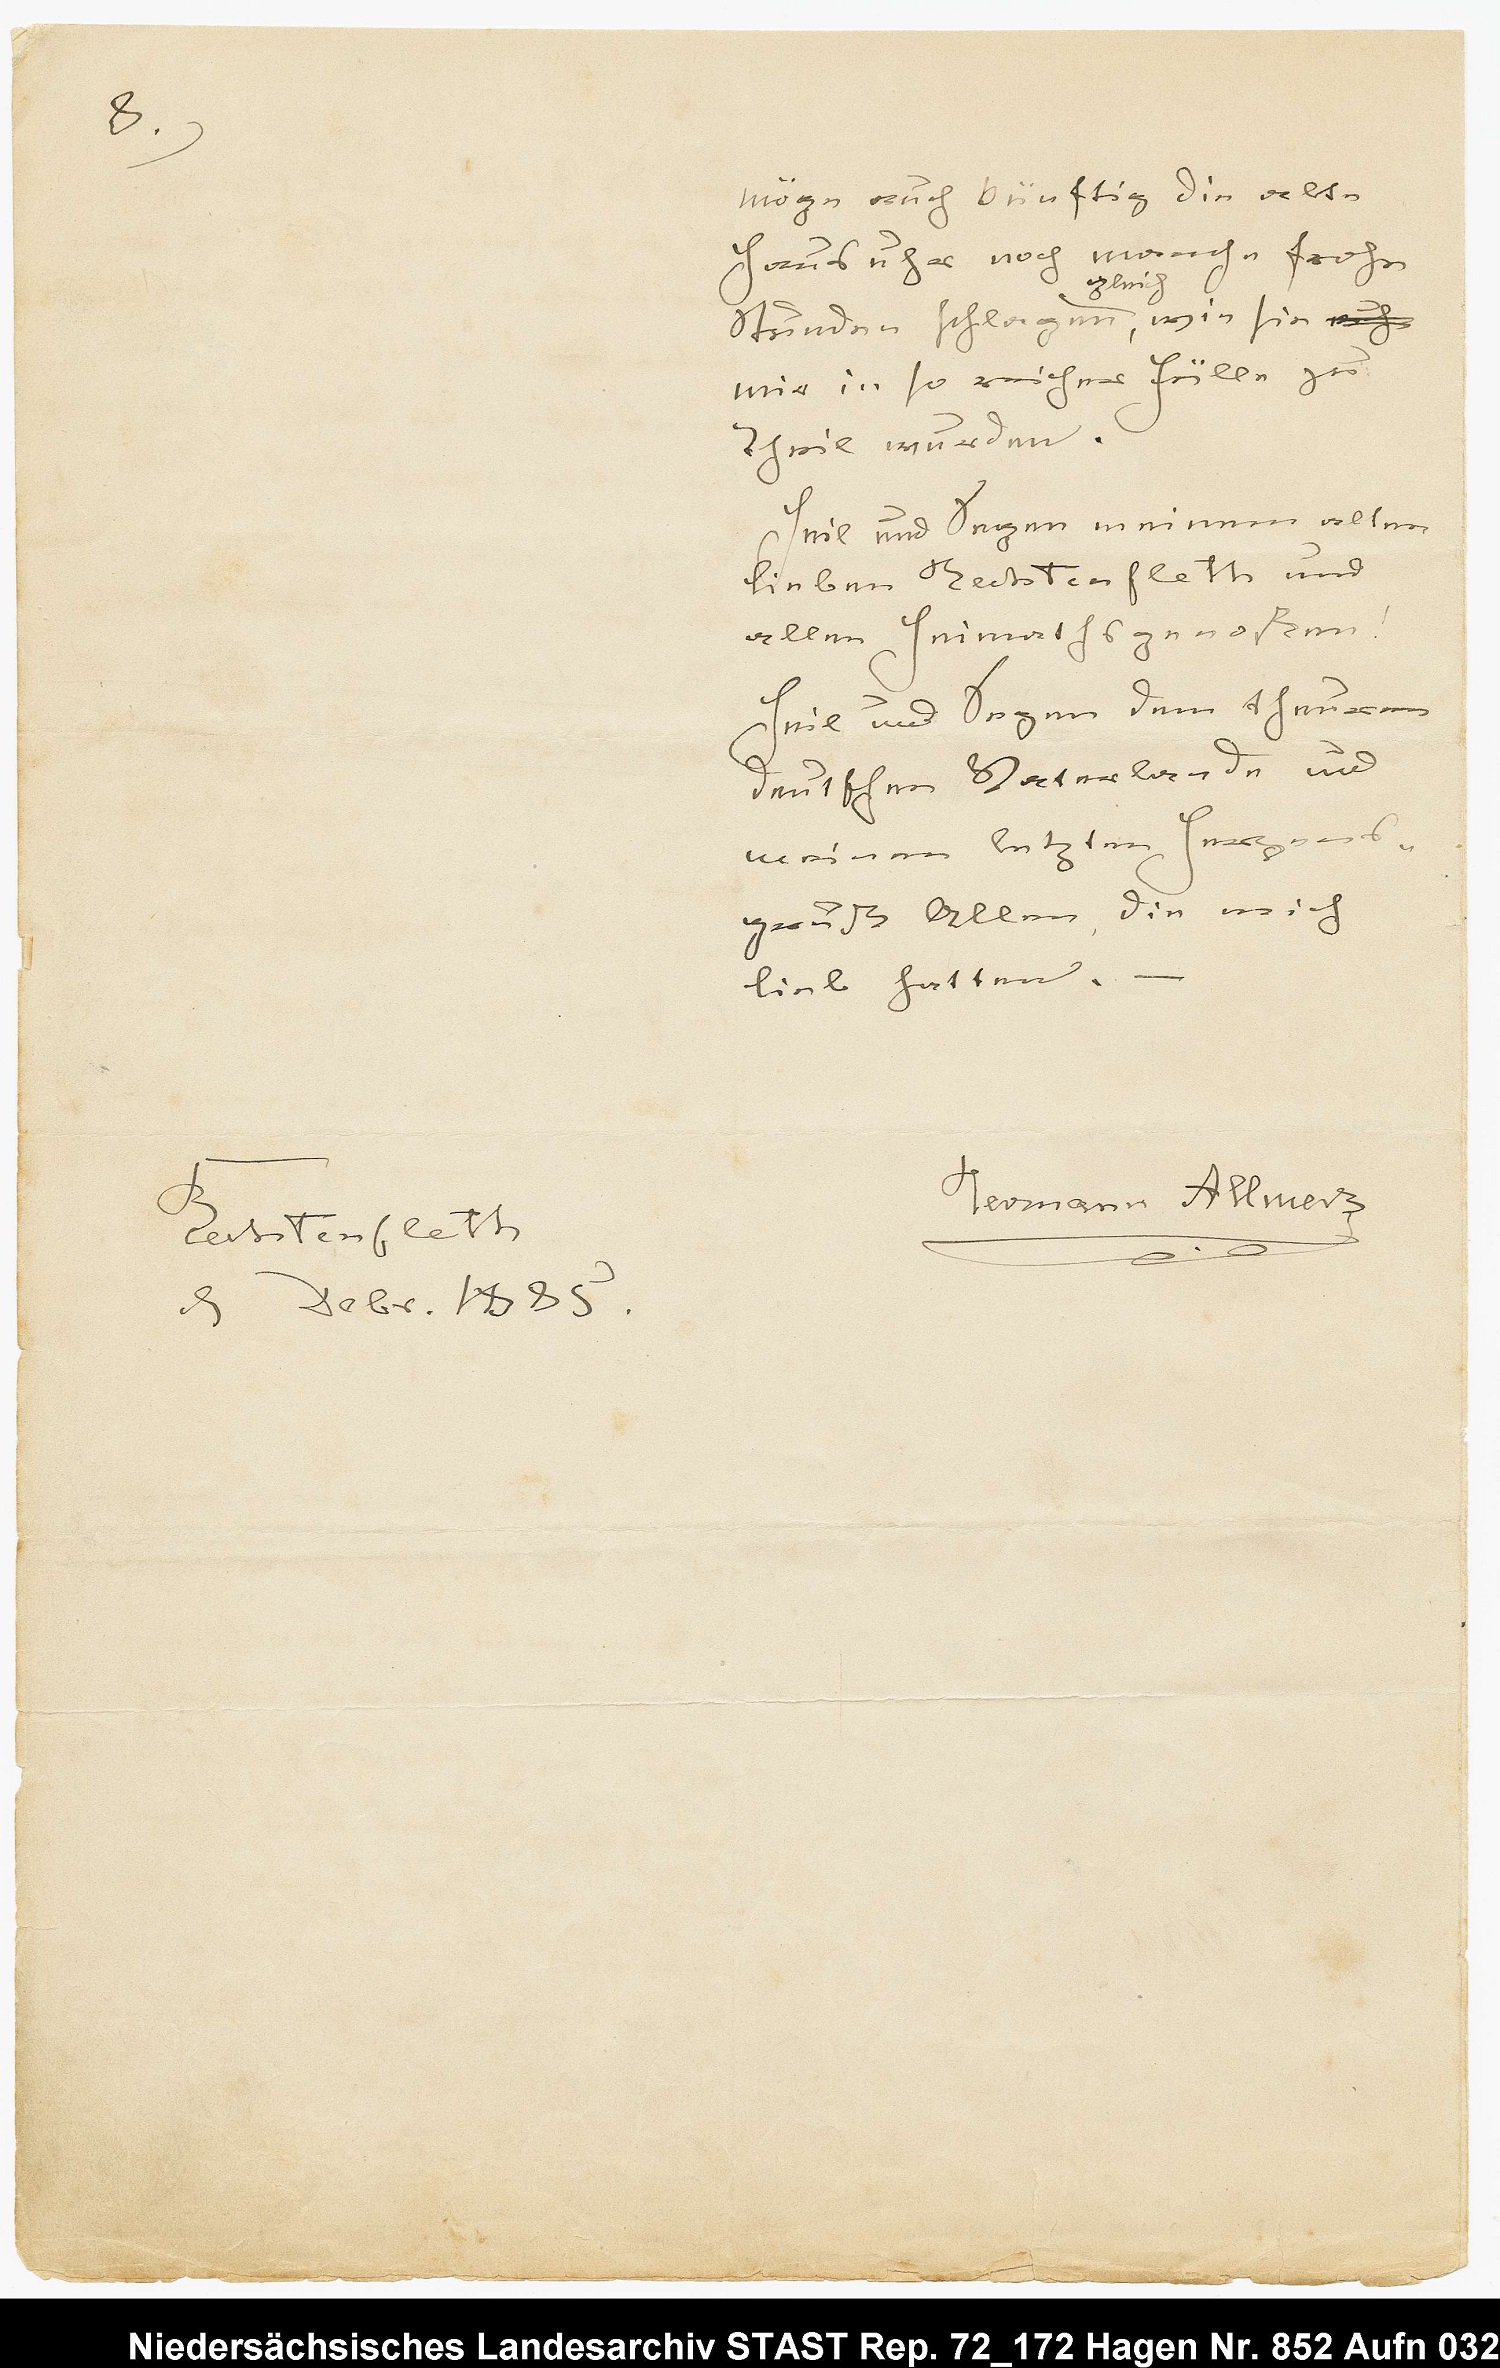 8.
möge auch künftig die alte
Hausuhr noch manche frohe
gleich
Stunden schlagen, wie sie auch
mir in so reicher Fülle zu
Theil wurden.
Heil und Segen meinem alten
lieben Rechtenfleth und
allen Heimathsgenoßen!
Heil und Segen dem theuren
deutschen Vaterlande und
meinen letzten Herzens-
gruß Allen, die mich
lieb hatten. —
Hermann Allmers
Rechtenfleth
d Debr. 1885.
Niedersächsisches Landesarchiv STAST Rep. 72_172 Hagen Nr. 852 Aufn 032